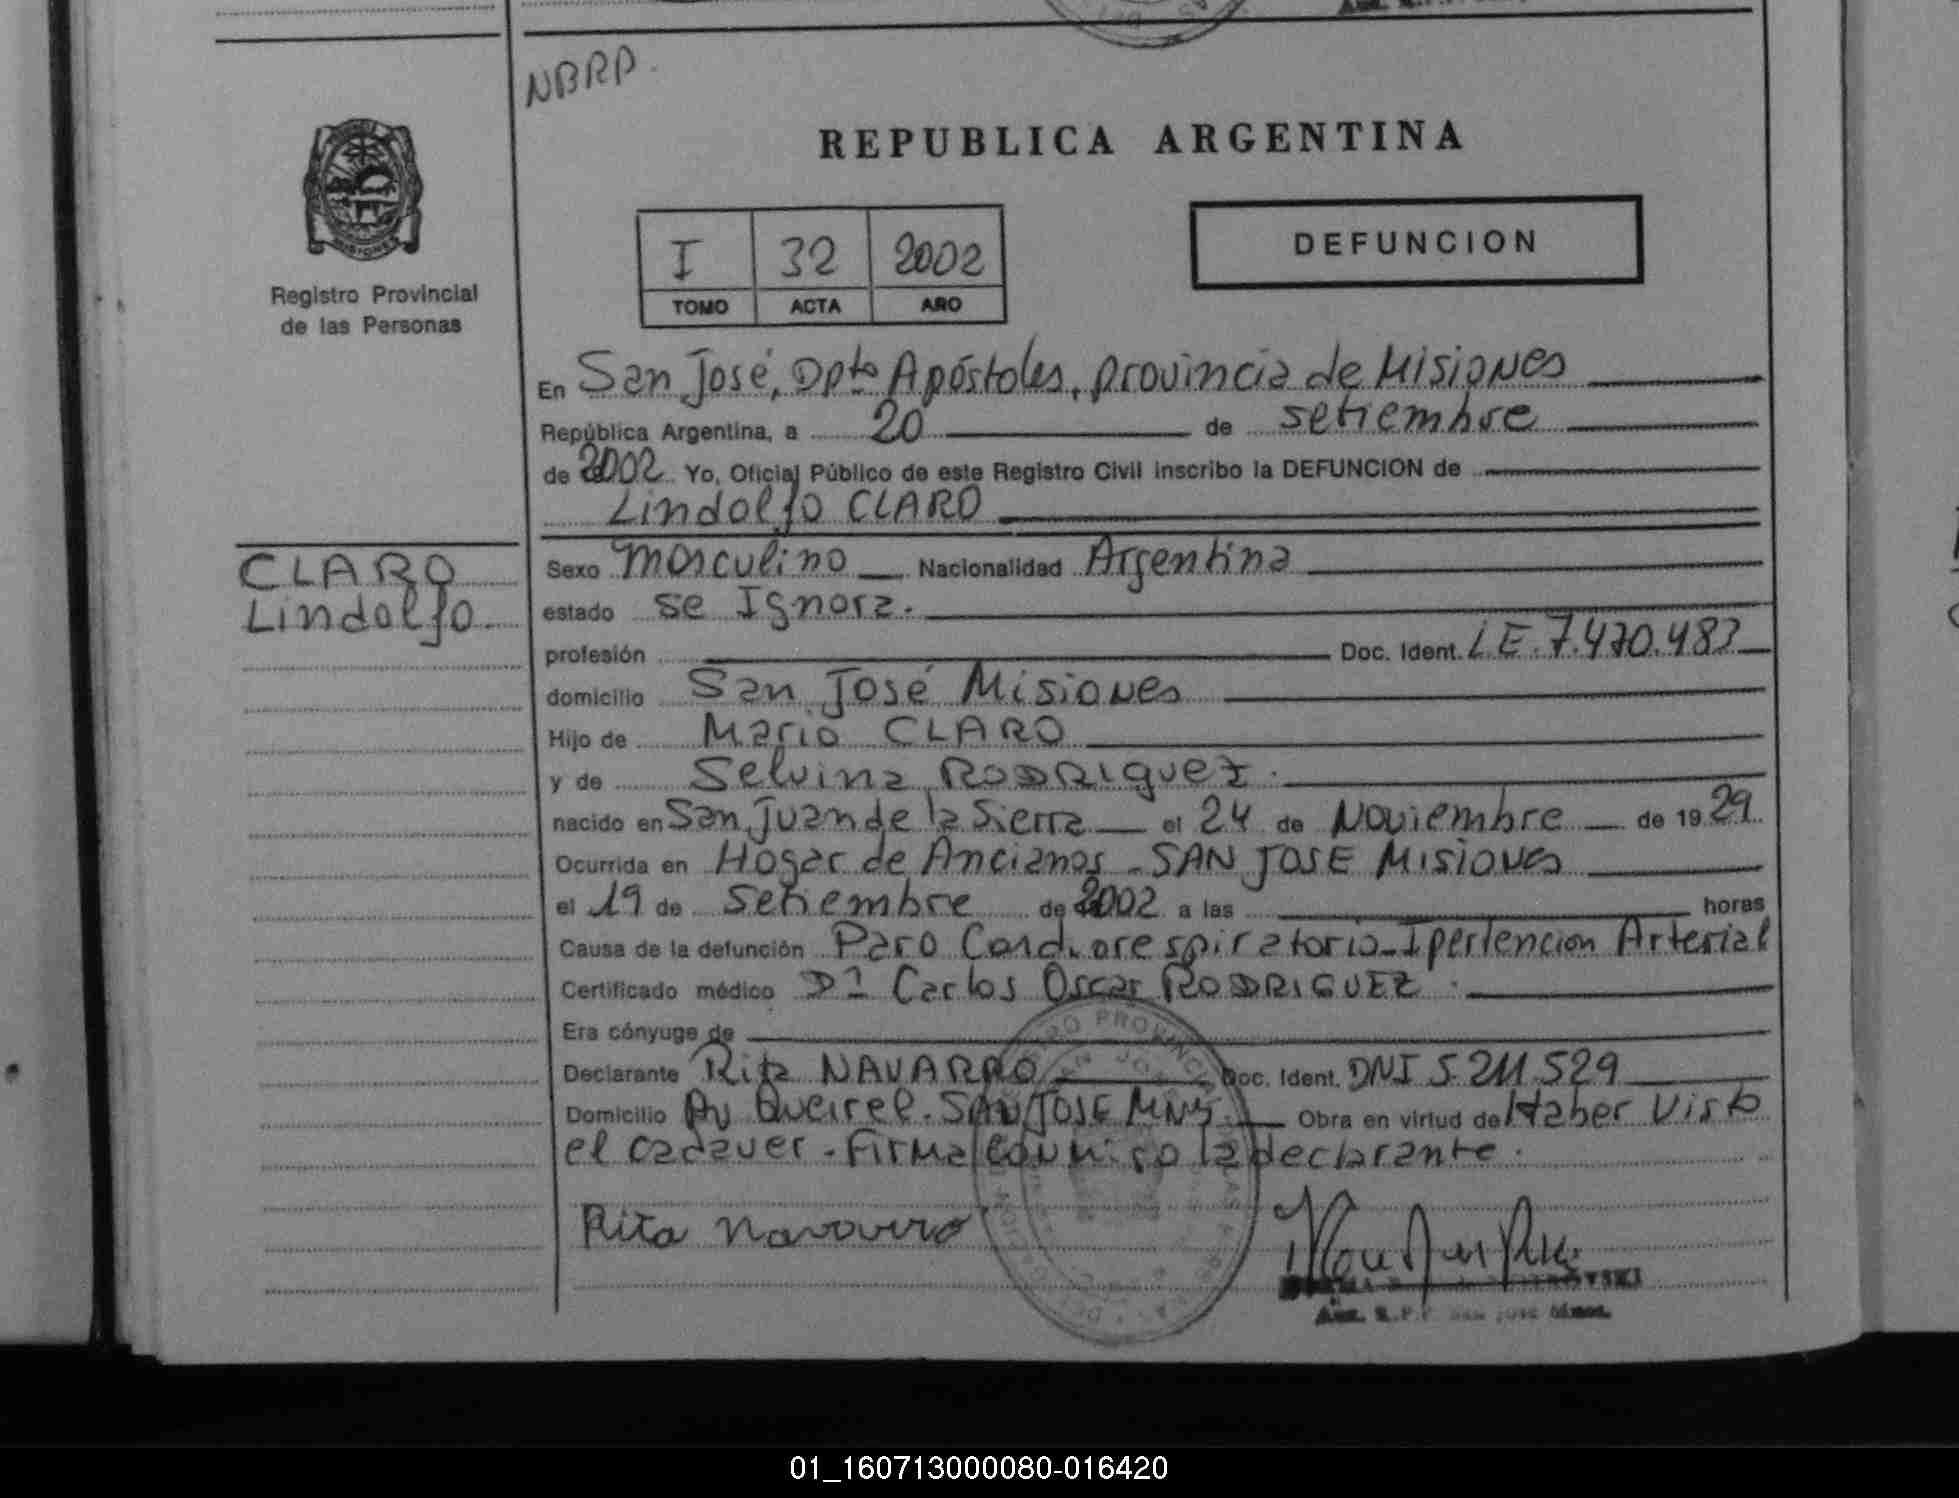 NBRP.
REPUBLICA ARGENTINA
MISIONES
Registro Provincial
de las Personas
I 32 2002
TOMO ACTA AÑO
DEFUNCION
En San José, Dpto Apóstoles, provincia de Misiones
República Argentina, a 20 de setiembre
de 2002 Yo, Oficial Público de este Registro Civil inscribo la DEFUNCION de
Lindolfo CLARO
CLARO
Lindolfo.
Sexo masculino Nacionalidad Argentina
estado se Ignora.
profesión Doc. Ident. LE. 7.470.483
domicilio San José Misiones
Hijo de Mario CLARO
y de Selvina RODRIGUEZ.
nacido en San Juan de la Sierra el 24 de Noviembre de 1929.
Ocurrida en Hogar de Ancianos - SAN JOSE Misiones
el 19 de Setiembre de 2002 a las horas
Causa de la defunción Paro Cardiorespiratorio - Ipertencion Arterial
Certificado médico Dr Carlos Oscar RODRIGUEZ.
Era cónyuge de
Declarante Rita NAVARRO Doc. Ident. DNI 5.211.529
Domicilio Av Queirel. SAN JOSE Mnes. Obra en virtud de Haber Visto
el cadaver. Firma conmigo la declarante.
Rita Navarro
Aux. R.P.P. San José Mnes.
01_160713000080-016420